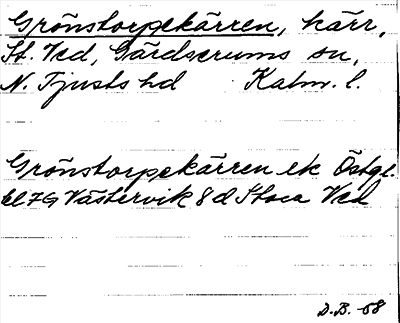 Grönstorpekärren, kärr,
St. Ved, Gärdserums sn,
N. Tjusts hd Kalm. l.
Grönstorpekärren ek Östgl.
bl 7G Västervik 8 d Stora Ved
D.B. -68